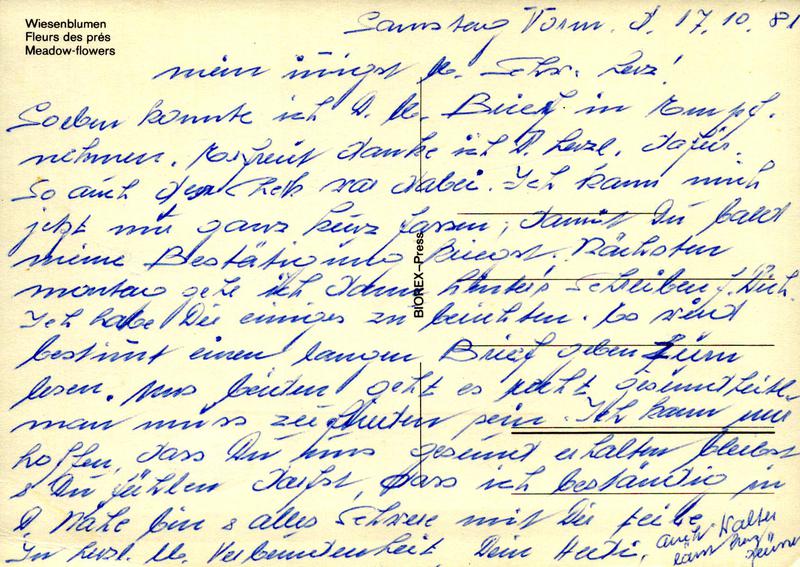 Wiesenblumen
Fleurs des prés
Meadow-flowers
Samstag Vorm. d. 17.10.81
mein innigst lb. Schw. Herz!
Soeben konnte ich D. lb. Brief in Empf.
nehmen. Erfreut danke ich D. herzl. dafür.
So auch der Check war dabei. Ich kann mich
jetzt nur ganz kurz fassen, damit Du bald
meine Bestätigung kriegst. Nächsten
montag gehe ich dann hinter's Schreiben f. Dich.
Ich habe Dir einiges zu berichten. Es wird
bestimt einen langen Brief geben zum
lesen. Uns beiden geht es recht, gesundheitl.
man muss zufrieden sein. Ich kann nur
hoffen, dass Du uns gesund erhalten bleibst
& Du fühlen darfst, dass ich beständig in
D. Nähe bin & alles Schwere mit Dir teile.
In herzl. lb. Verbundenheit, Dein Hedi,
auch Walter
lässt herz
BIOREX–Press